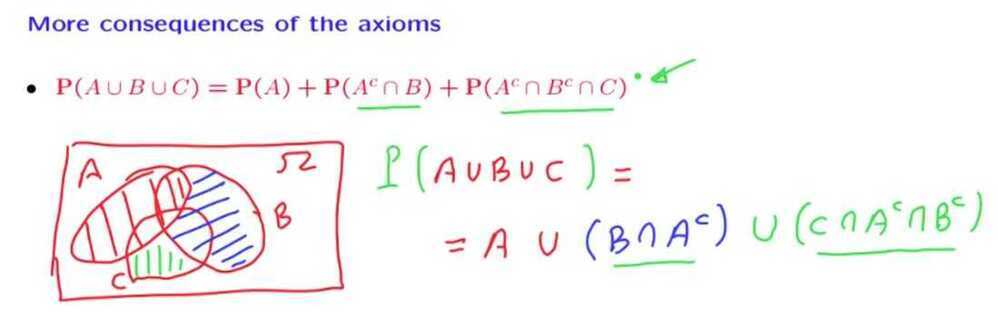 More consequences of the axioms
• P(A ∪ B ∪ C) = P(A) + P(Aᶜ ∩ B) + P(Aᶜ ∩ Bᶜ ∩ C)
A Ω B C
P(A ∪ B ∪ C) =
= A ∪ (B ∩ Aᶜ) ∪ (C ∩ Aᶜ ∩ Bᶜ)